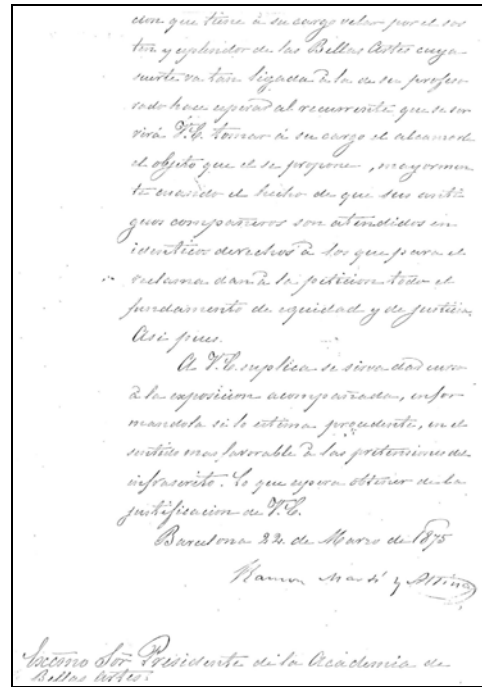 cion que tiene à su cargo velar por el sos
ten y esplendor de las Bellas Artes cuya
suerte va tan ligada à la de su profeso
rado hace esperar al recurrente que se ser
virá V.E. tomar á su cargo el alcance de
el objeto que el se propone, mayormen
te cuando el hecho de que sus anti
guos compañeros son atendidos en
identicos derechos à los que para el
reclama dan à la peticion todo el
fundamento de equidad y de justicia.
Asi pues.
A V.E. suplica se sirva dar curso
à la exposicion acompañada, infor
mandola si lo estima procedente, en el
sentido mas favorable à las pretensiones del
infrascrito. Lo que espera obtener de la
justificacion de V.E.
Barcelona 22 de Marzo de 1875
Ramon Martí y Alsina
Excmo Sor Presidente de la Academia de
Bellas Artes.